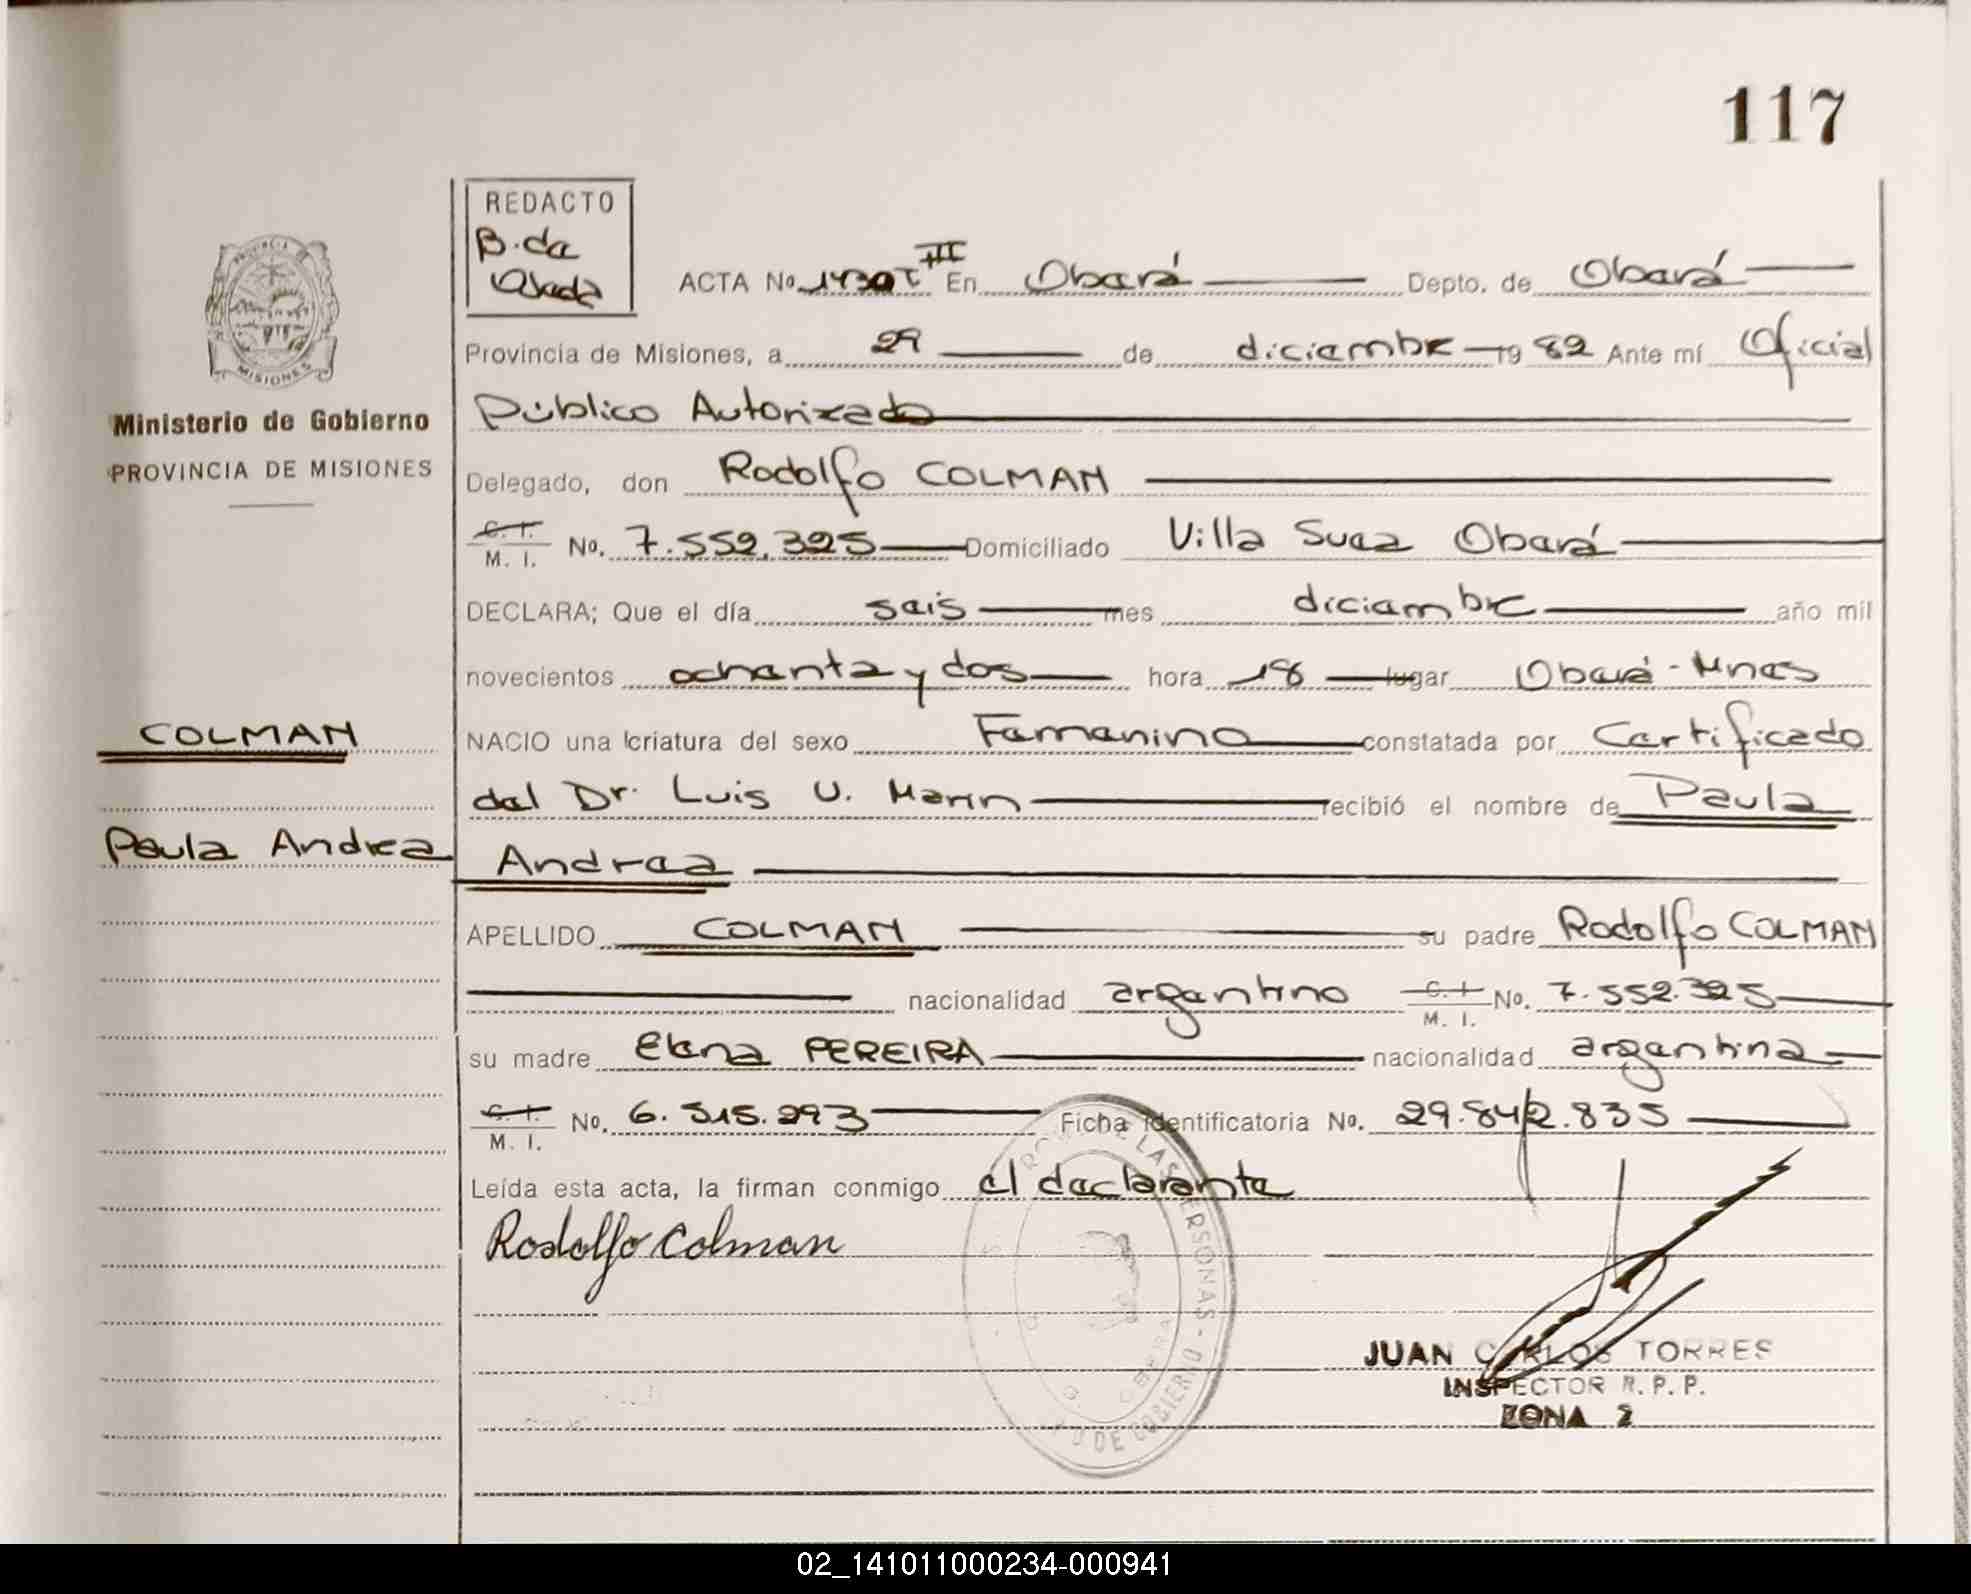 117
REDACTO
B. de
ACTA No. 1430 T III En Oberá Depto. de Oberá
Provincia de Misiones, a 29 de diciembre 19 82 Ante mí Oficial
Público Autorizado
Delegado, don Rodolfo COLMAN
C. I. M. I. No. 7.552.325 Domiciliado Villa Suez Oberá
DECLARA; Que el día seis mes diciembre año mil
novecientos ochenta y dos hora 18 lugar Oberá - Mnes
NACIO una criatura del sexo Femenino constatada por Certificado
del Dr. Luis U. Marin recibió el nombre de Paula
Andrea
APELLIDO COLMAN su padre Rodolfo COLMAN
nacionalidad argentino C. I. M. I. No. 7.552.325
su madre Elena PEREIRA nacionalidad argentina
C. I. M. I. No. 6.515.293 Ficha Identificatoria No. 29.842.835
Leída esta acta, la firman conmigo el declarante
Rodolfo Colman
JUAN CARLOS TORRES
INSPECTOR R. P. P.
ZONA 2
PROVINCIA DE
MISIONES
Ministerio de Gobierno
PROVINCIA DE MISIONES
COLMAN
Paula Andrea
DE LAS PERSONAS - DE GOBIERNO
02_141011000234-000941